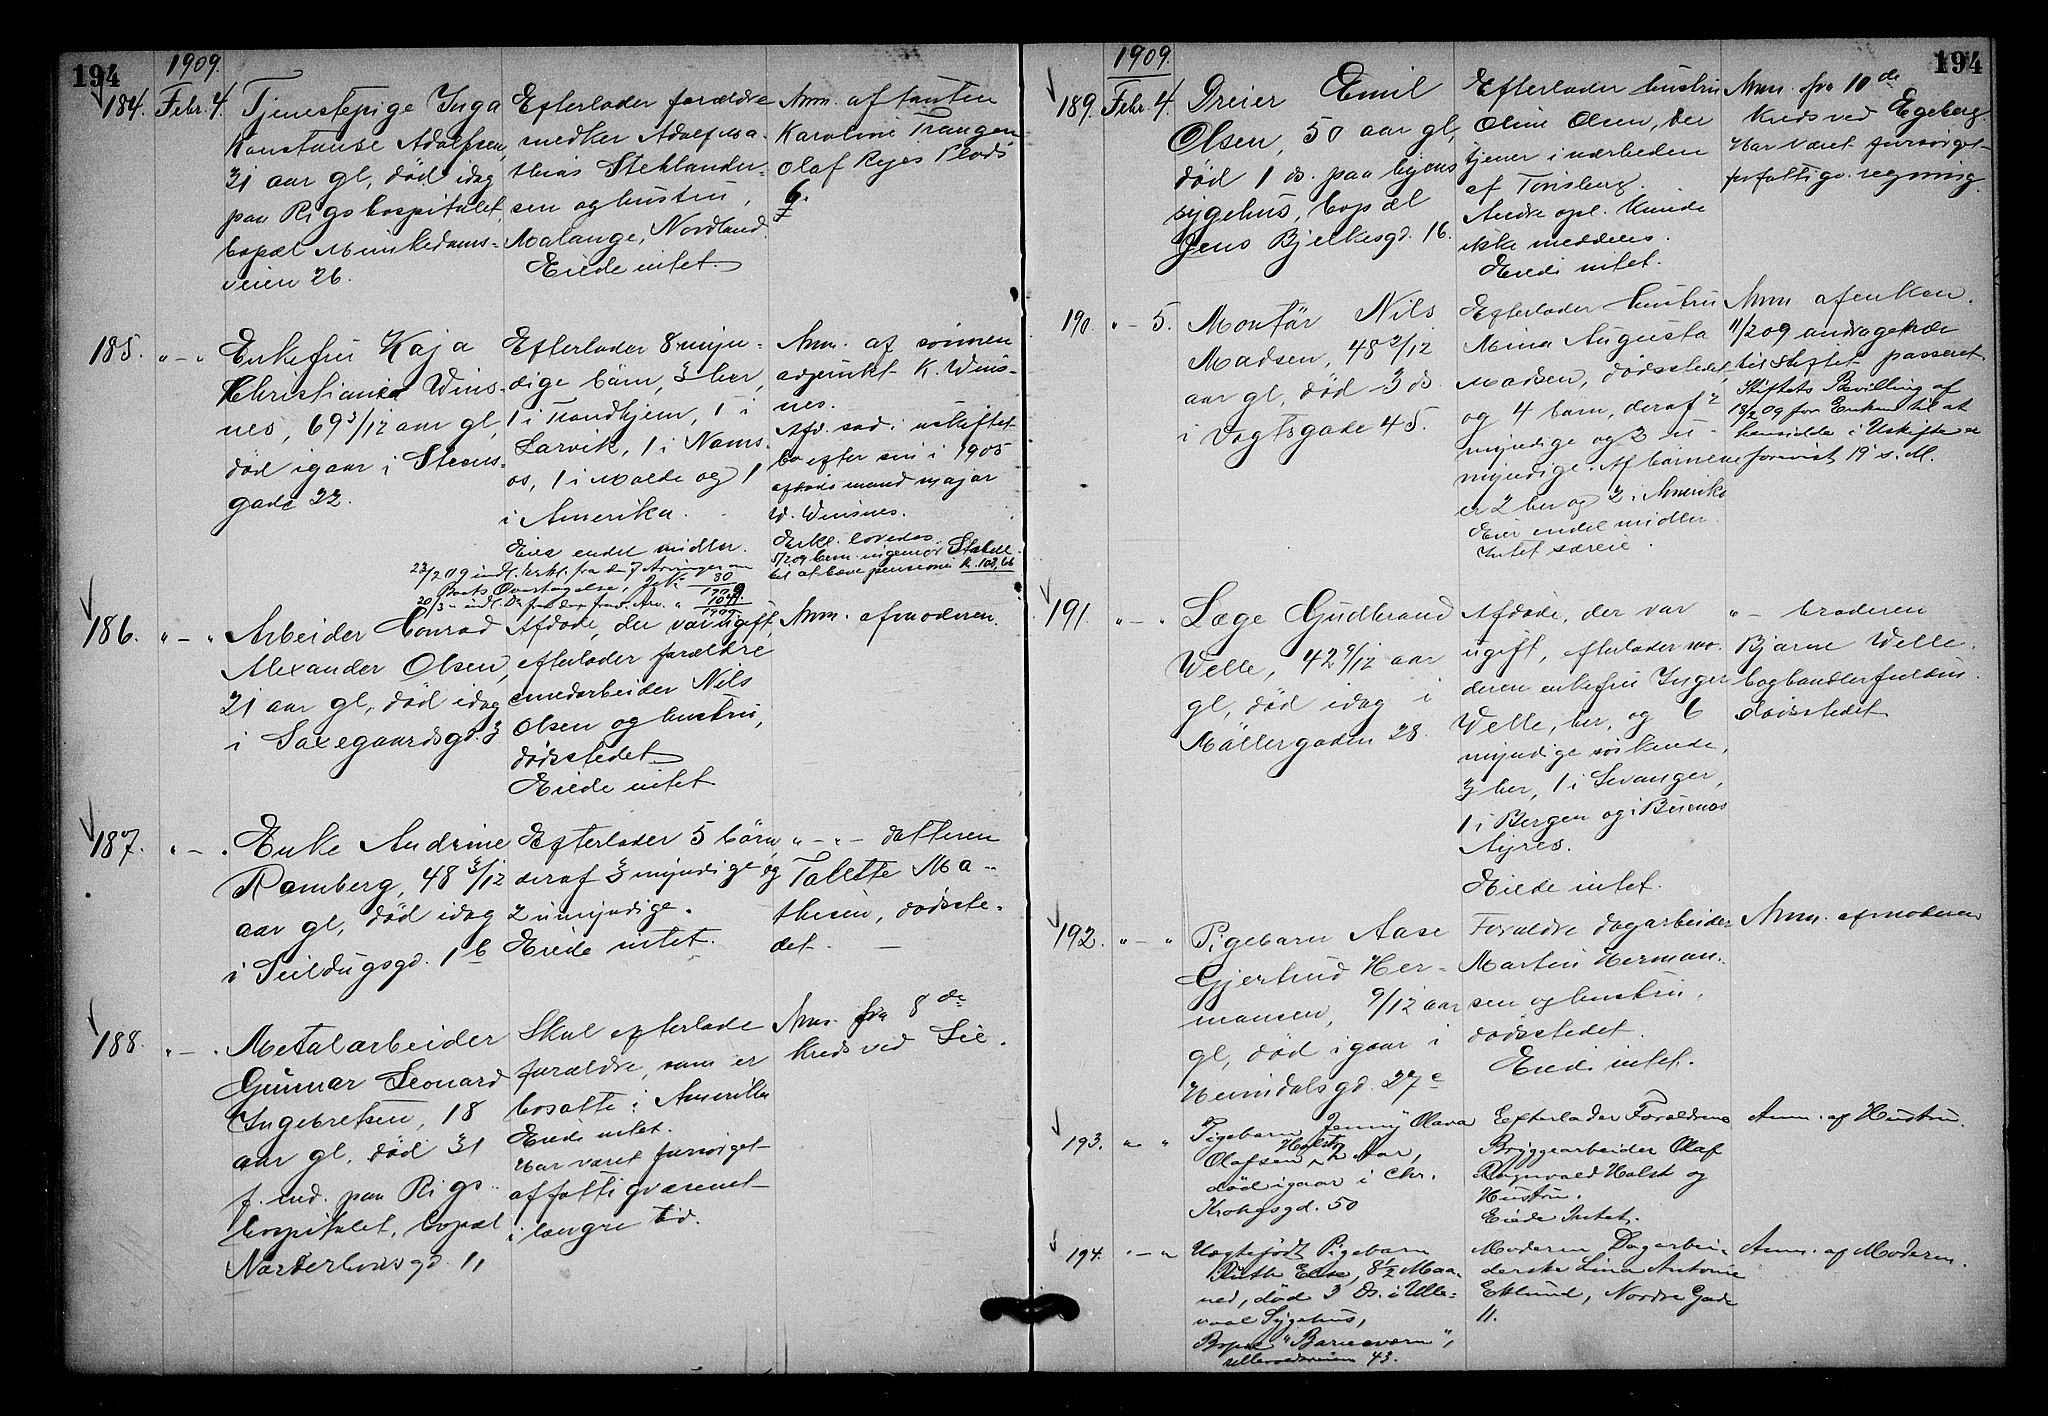 194
1909.
184. Febr. 4. Tjenestepige Inga
Konstanse Adolfsen,
31 aar gl, død idag
paa Rigshospitalet,
bopæl Munkedams-
veien 26.
Efterlader forældre
Adolf Ma-
thias Stehlander-
sen og hustru,
Malange, Nordland.
Eiede intet.
Anm. af tanten
Karoline Trangen
Olaf Ryes Plads
6.
185. " — " Enkefru Kaja
Christiania Wins-
nes, 69 3/12 aar gl,
død igaar i Stens-
gade 22.
Efterlader 8 myn-
dige børn, 3 her,
1 i Trondhjem, 1 i
Larvik, 1 i Nams-
os, 1 i Molde og 1
i Amerika.
Eier endel midler.
Anm. af sønnen
adjunkt K. Wins-
nes.
Afd. sad i uskiftet
bo efter sin i 1905
afdøde mand major
W. Winsnes.
Erkl. lovedes.
186. " — " Arbeider Conrad
Alexander Olsen,
21 aar gl, død idag
i Saxegaardsgd. 3
Afdøde, der var ugift,
efterlader forældre
smedarbeider Nils
Olsen og hustru,
dødsstedet
Eiede intet
Anm. af moderen.
187. " — " Enke Andrine
Ramberg, 48 3/12
aar gl, død idag
i Seildugsgd. 1 b
Efterlader 5 børn,
deraf 3 myndige og
2 umyndige.
Eiede intet.
" — " — datteren
Talette Ma-
thisen, dødsste-
det. —
188. " — " Metalarbeider
Gunnar Leonard
Ingebretsen, 18
aar gl, død 31
f. md. paa Rigs-
hospitalet, bopæl
Norderhovsgd. 11
Skal efterlade
forældre, som er
bosatte i Amerika
Eiede intet.
Har været forsørget
af fattigvæsenet
i længre tid.
Anm. fra 8de
kreds ved Lie.
194
1909.
189. Febr. 4. Dreier Emil
Olsen, 50 aar gl,
død 1 ds. paa byens
sygehus, bopæl
Jens Bjelkesgd. 16.
Efterlader hustru
Oline Olsen, der
tjener i nærheden
af Tønsberg.
Andre opl. kunde
ikke meddeles.
Eiede intet.
Anm. fra 10de
kreds ved Egeberg
Har været forsørget
for fattigv. regning.
190. " — 5. Montør Nils
Madsen, 48 2/12
aar gl, død 3 ds
i Vogtsgade 45.
Efterlader hustru
Mina Augusta
Madsen, dødsstedet,
og 4 børn, deraf 2
myndige og 2 u-
myndige. Af børnene
er 2 her og 2 i Amerika
Eier endel midler.
Intet særeie.
Anm af enken.
11/2 09 andragende
til Stiftet passeret.
Stiftets Bevilling af
18/2 09 for Enken til at
hensidde i Uskifte er
forevist 19 s. M.
191. " — " Læge Gudbrand
Welle, 42 9/12 aar
gl, død idag i
Møllergaden 28.
Afdøde, der var
ugift, efterlader mo-
deren enkefru Inger
Welle, her, og 6
myndige søskende,
3 her, 1 i Levanger,
1 i Bergen og i Buenos
Ayres.
Eiede intet.
" — broderen
Bjarne Welle.
boghandlerfuldm.
dødsstedet
192. " — " Pigebarn Aase
Gjertrud Her-
mansen, 9/12 aar
gl, død igaar i
Heimdalsgd. 27 c
Forældre dagarbeider
Martin Herman-
sen og hustru,
dødsstedet.
Eiede intet.
Anm. af moderen
193. " " Pigebarn Jenny Olava
Holst
Olafsen, 2 Aar,
død igaar i Chr.
Krohgsgd. 50
Efterlader Forældrene
Bryggearbeider Olaf
Ragnvald Holst og
Hustru.
Eiede Intet.
Anm. af Hustru.
194. " — " Uægtefødt Pigebarn
Ruth Else, 8 1/2 Maa-
ned, død 3 Ds. i Ulle-
vaal Sygehus,
Bopæl "Barneværn",
Ullevoldsveien 43.
Moderen Dagarbei-
derske Lina Antonie
Eklund, Nordre Gade
11.
Anm. af Moderen.